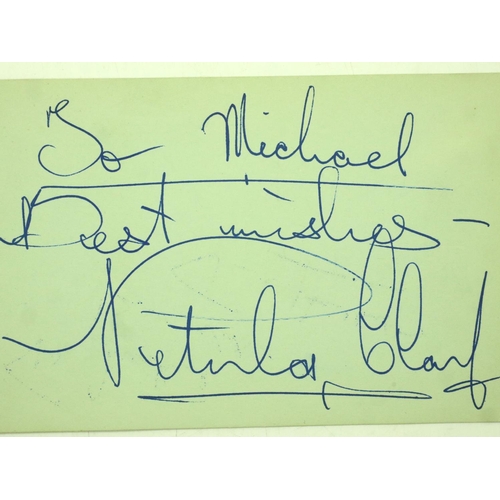 To Michael
Best wishes -
Petula Clark